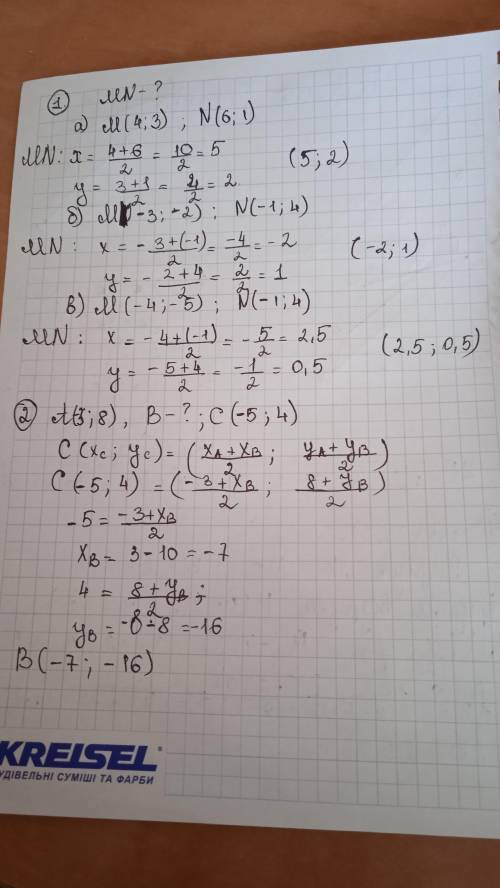 1 MN-?
а) M(4;3) ; N(6;1)
MN: x = 4+6/2 = 10/2 = 5 (5;2)
y = 3+1/2 = 4/2 = 2
б) M(-3;-2) ; N(-1;4)
MN: x = -3+(-1)/2 = -4/2 = -2 (-2;1)
y = -2+4/2 = 2/2 = 1
в) M(-4;-5) ; N(-1;4)
MN: x = -4+(-1)/2 = -5/2 = 2,5 (2,5;0,5)
y = -5+4/2 = -1/2 = 0,5
2 A(3;8), B-?; C(-5;4)
C(xc; yc) = (xA+xB/2 ; yA+yB/2)
C(-5;4) = (-3+xB/2 ; 8+yB/2)
-5 = -3+xB/2
xB = 3-10 = -7
4 = 8+yB/2 ;
yB = -8-8 = -16
B(-7; -16)
KREISEL
УДІВЕЛЬНІ СУМІШІ ТА ФАРБИ